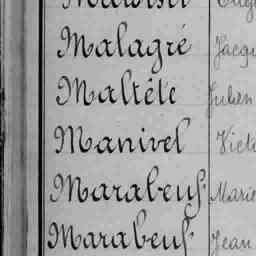 Malagré
Maltête Julien
Manivel
Marabeuf Marie
Marabeuf Jean